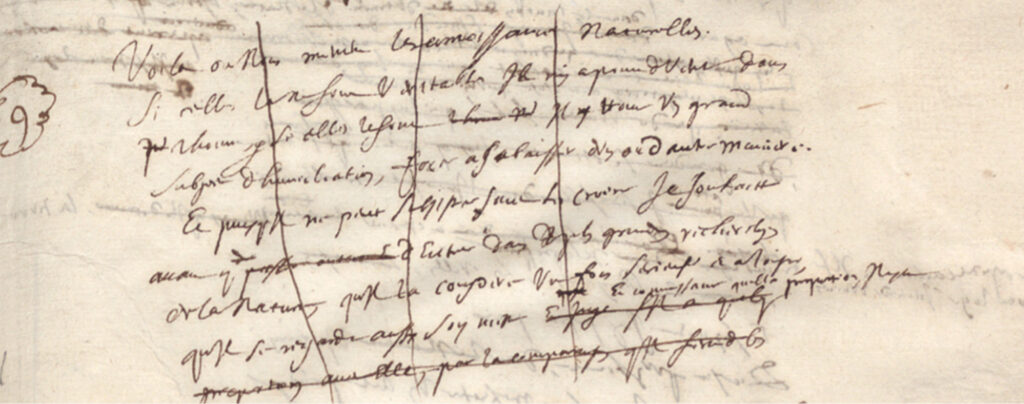 9
Voila ou Nous meinent les connoissances Naturelles.
Si celles la ne sont Veritables Il ny a point de Verité dans
l'homme, & si elles le sont Il y trouve Un grand
subject d'humiliation, forcé a s'abaisser d'une ou d'autre maniere.
Et puisqu'il ne peut subsister sans les croire Je souhaitte
avant que d'entrer dans de plus grandes recherches
de la Nature qu'Il la considere Une fois serieusement & a loisir
qu'Il se regarde aussy soy mesme Et connoissant quelle proportion Il y a
proportion avec elle, par la comparaison qu'Il fera de ces